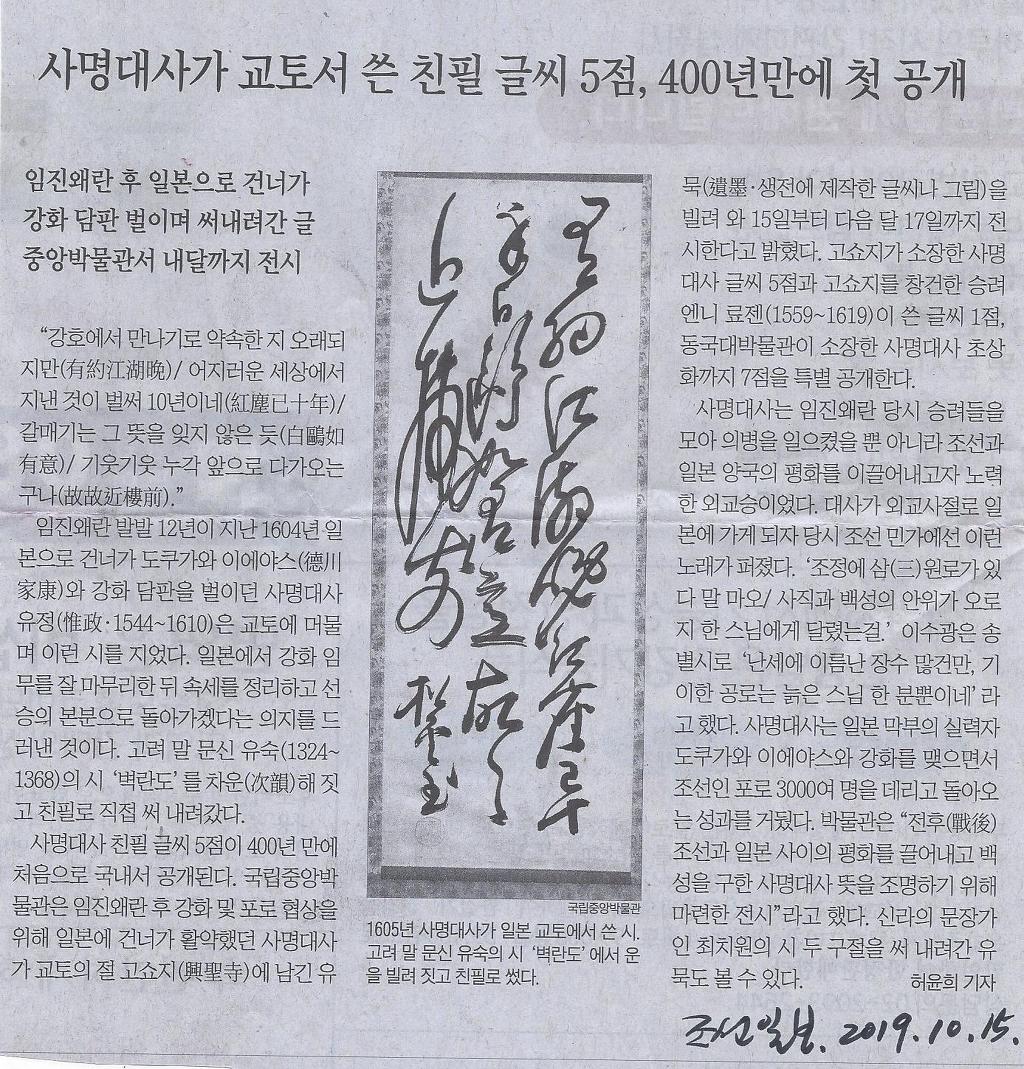 사명대사가 교토서 쓴 친필 글씨 5점, 400년만에 첫 공개
임진왜란 후 일본으로 건너가
강화 담판 벌이며 써내려간 글
중앙박물관서 내달까지 전시
“강호에서 만나기로 약속한 지 오래되
지만(有約江湖晩)/ 어지러운 세상에서
지낸 것이 벌써 10년이네(紅塵已十年)/
갈매기는 그 뜻을 잊지 않은 듯(白鷗如
有意)/ 기웃기웃 누각 앞으로 다가오는
구나(故故近樓前).”
임진왜란 발발 12년이 지난 1604년 일
본으로 건너가 도쿠가와 이에야스(德川
家康)와 강화 담판을 벌이던 사명대사
유정(惟政·1544~1610)은 교토에 머물
며 이런 시를 지었다. 일본에서 강화 임
무를 잘 마무리한 뒤 속세를 정리하고 선
승의 본분으로 돌아가겠다는 의지를 드
러낸 것이다. 고려 말 문신 유숙(1324~
1368)의 시 ‘벽란도’를 차운(次韻)해 짓
고 친필로 직접 써 내려갔다.
사명대사 친필 글씨 5점이 400년 만에
처음으로 국내서 공개된다. 국립중앙박
물관은 임진왜란 후 강화 및 포로 협상을
위해 일본에 건너가 활약했던 사명대사
가 교토의 절 고쇼지(興聖寺)에 남긴 유
有約江湖晩紅塵已十
年白鷗如有意故故
近樓前
국립중앙박물관
1605년 사명대사가 일본 교토에서 쓴 시.
고려 말 문신 유숙의 시 ‘벽란도’에서 운
을 빌려 짓고 친필로 썼다.
묵(遺墨·생전에 제작한 글씨나 그림)을
빌려 와 15일부터 다음 달 17일까지 전
시한다고 밝혔다. 고쇼지가 소장한 사명
대사 글씨 5점과 고쇼지를 창건한 승려
엔니 료젠(1559~1619)이 쓴 글씨 1점,
동국대박물관이 소장한 사명대사 초상
화까지 7점을 특별 공개한다.
사명대사는 임진왜란 당시 승려들을
모아 의병을 일으켰을 뿐 아니라 조선과
일본 양국의 평화를 이끌어내고자 노력
한 외교승이었다. 대사가 외교사절로 일
본에 가게 되자 당시 조선 민가에선 이런
노래가 퍼졌다. ‘조정에 삼(三)원로가 있
다 말 마오/ 사직과 백성의 안위가 오로
지 한 스님에게 달렸는걸.’ 이수광은 송
별시로 ‘난세에 이름난 장수 많건만, 기
이한 공로는 늙은 스님 한 분뿐이네’라
고 했다. 사명대사는 일본 막부의 실력자
도쿠가와 이에야스와 강화를 맺으면서
조선인 포로 3000여 명을 데리고 돌아오
는 성과를 거뒀다. 박물관은 “전후(戰後)
조선과 일본 사이의 평화를 끌어내고 백
성을 구한 사명대사 뜻을 조명하기 위해
마련한 전시”라고 했다. 신라의 문장가
인 최치원의 시 두 구절을 써 내려간 유
묵도 볼 수 있다.
허윤희 기자
조선일보. 2019.10.15.